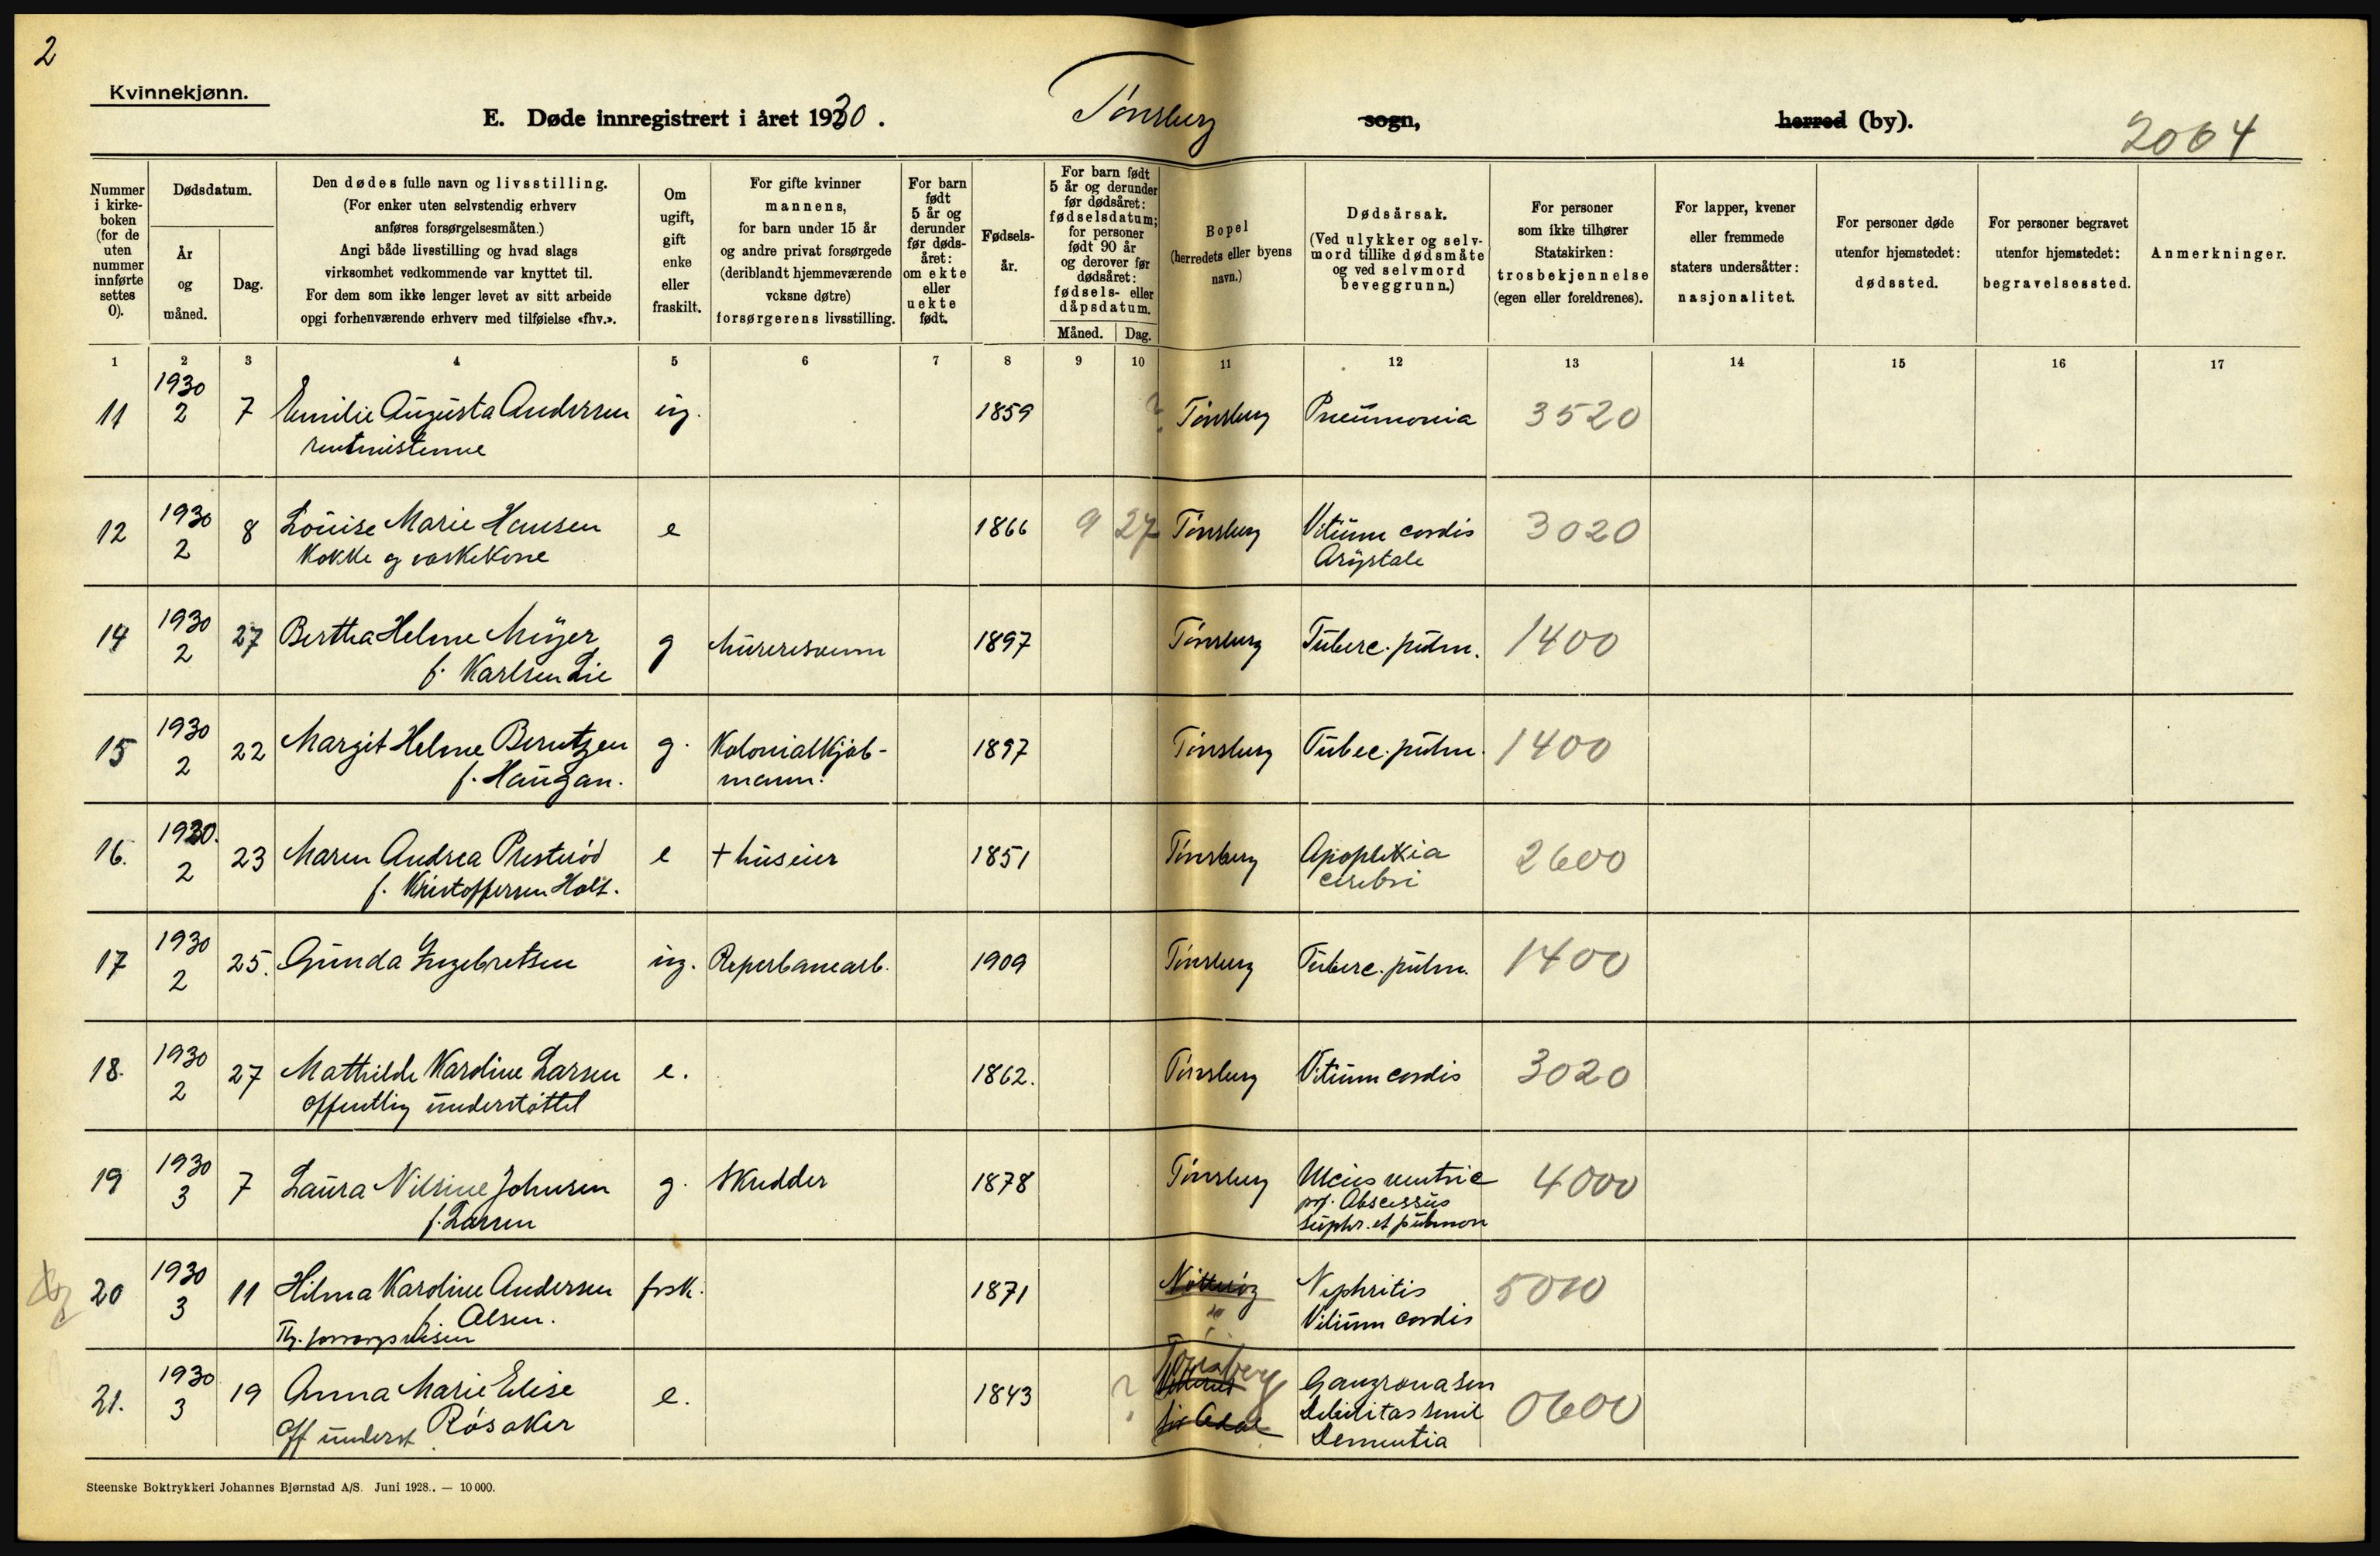 2
Kvinnekjønn.
E. Døde innregistrert i året 1930.
Tønsberg
sogn,
herred (by).
2064
Nummer i kirke-boken (for de uten nummer innførte settes 0).
Dødsdatum.
År og måned.
Dag.
Den dødes fulle navn og livsstilling.
(For enker uten selvstendig erhverv
anføres forsørgelsesmåten.)
Angi både livsstilling og hvad slags
virksomhet vedkommende var knyttet til.
For dem som ikke lenger levet av sitt arbeide
opgi forhenværende erhverv med tilføielse «fhv.».
Om
ugift,
gift
enke
eller
fraskilt.
For gifte kvinner
mannens,
for barn under 15 år
og andre privat forsørgede
(deriblandt hjemmeværende
voksne døtre)
forsørgerens livsstilling.
For barn
født
5 år og
derunder
før døds-
året:
om ekte
eller
uekte
født.
Fødsels-
år.
For barn født
5 år og derunder
før dødsåret:
fødselsdatum;
for personer
født 90 år
og derover før
dødsåret:
fødsels- eller
dåpsdatum.
Måned. Dag.
Bopel
(herredets eller byens
navn.)
Dødsårsak.
(Ved ulykker og selv-
mord tillike dødsmåte
og ved selvmord
beveggrunn.)
For personer
som ikke tilhører
Statskirken:
trosbekjennelse
(egen eller foreldrenes).
For lapper, kvener
eller fremmede
staters undersåtter:
nasjonalitet.
For personer døde
utenfor hjemstedet:
dødssted.
For personer begravet
utenfor hjemstedet:
begravelsessted.
Anmerkninger.
1 2 3 4 5 6 7 8 9 10 11 12 13 14 15 16 17
1930
11 2 7 Emilie Augusta Andersen ug. 1859 ? Tønsberg Pneumonia 3520
rentenistenne
1930
12 2 8 Louise Marie Hansen e 1866 9 27 Tønsberg Vitium cordis 3020
Kokke og vaskekone
Asystale
1930
14 2 27 Bertha Helene Meyer g Murersvenn 1897 Tønsberg Tuberc. pulm. 1400
f. Karlsen Lie
1930
15 2 22 Margit Helene Berntzen g. Kolonialkjøb- 1897 Tønsberg Tubec. pulm. 1400
f. Haugan. mann.
1930.
16. 2 23 Maren Andrea Presterød e + huseier 1851 Tønsberg Apoplekia 2600
f. Kristoffersen Holt. cerebri
1930
17 2 25. Gunda Ingebretsen ug. Reperbanearb. 1909 Tønsberg Tuberc. pulm. 1400
1930
18. 2 27 Mathilde Karoline Larsen e. 1862. Tønsberg Vitium cordis 3020
offentlig understøttet
1930
19 3 7 Laura Nilsine Johnsen g. Skredder 1878 Tønsberg Ulcus ventric 4000
f. Larsen
prf. Abscessus
suphr. et pulmon
1930
20 3 11 Hilma Karoline Andersen frsk. 1871 Nøtterøy Nephritis 5010
f. Olsen.
Vitium cordis
Tbg. forsorgsvesen
1930
21. 3 19 Anna Marie Elise e. 1843 ? Tønsberg Gangræna sen 0600
Off underst Røsaker
Debilitas senil
Dementia
Steenske Boktrykkeri Johannes Bjørnstad A/S. Juni 1928.. — 10 000.